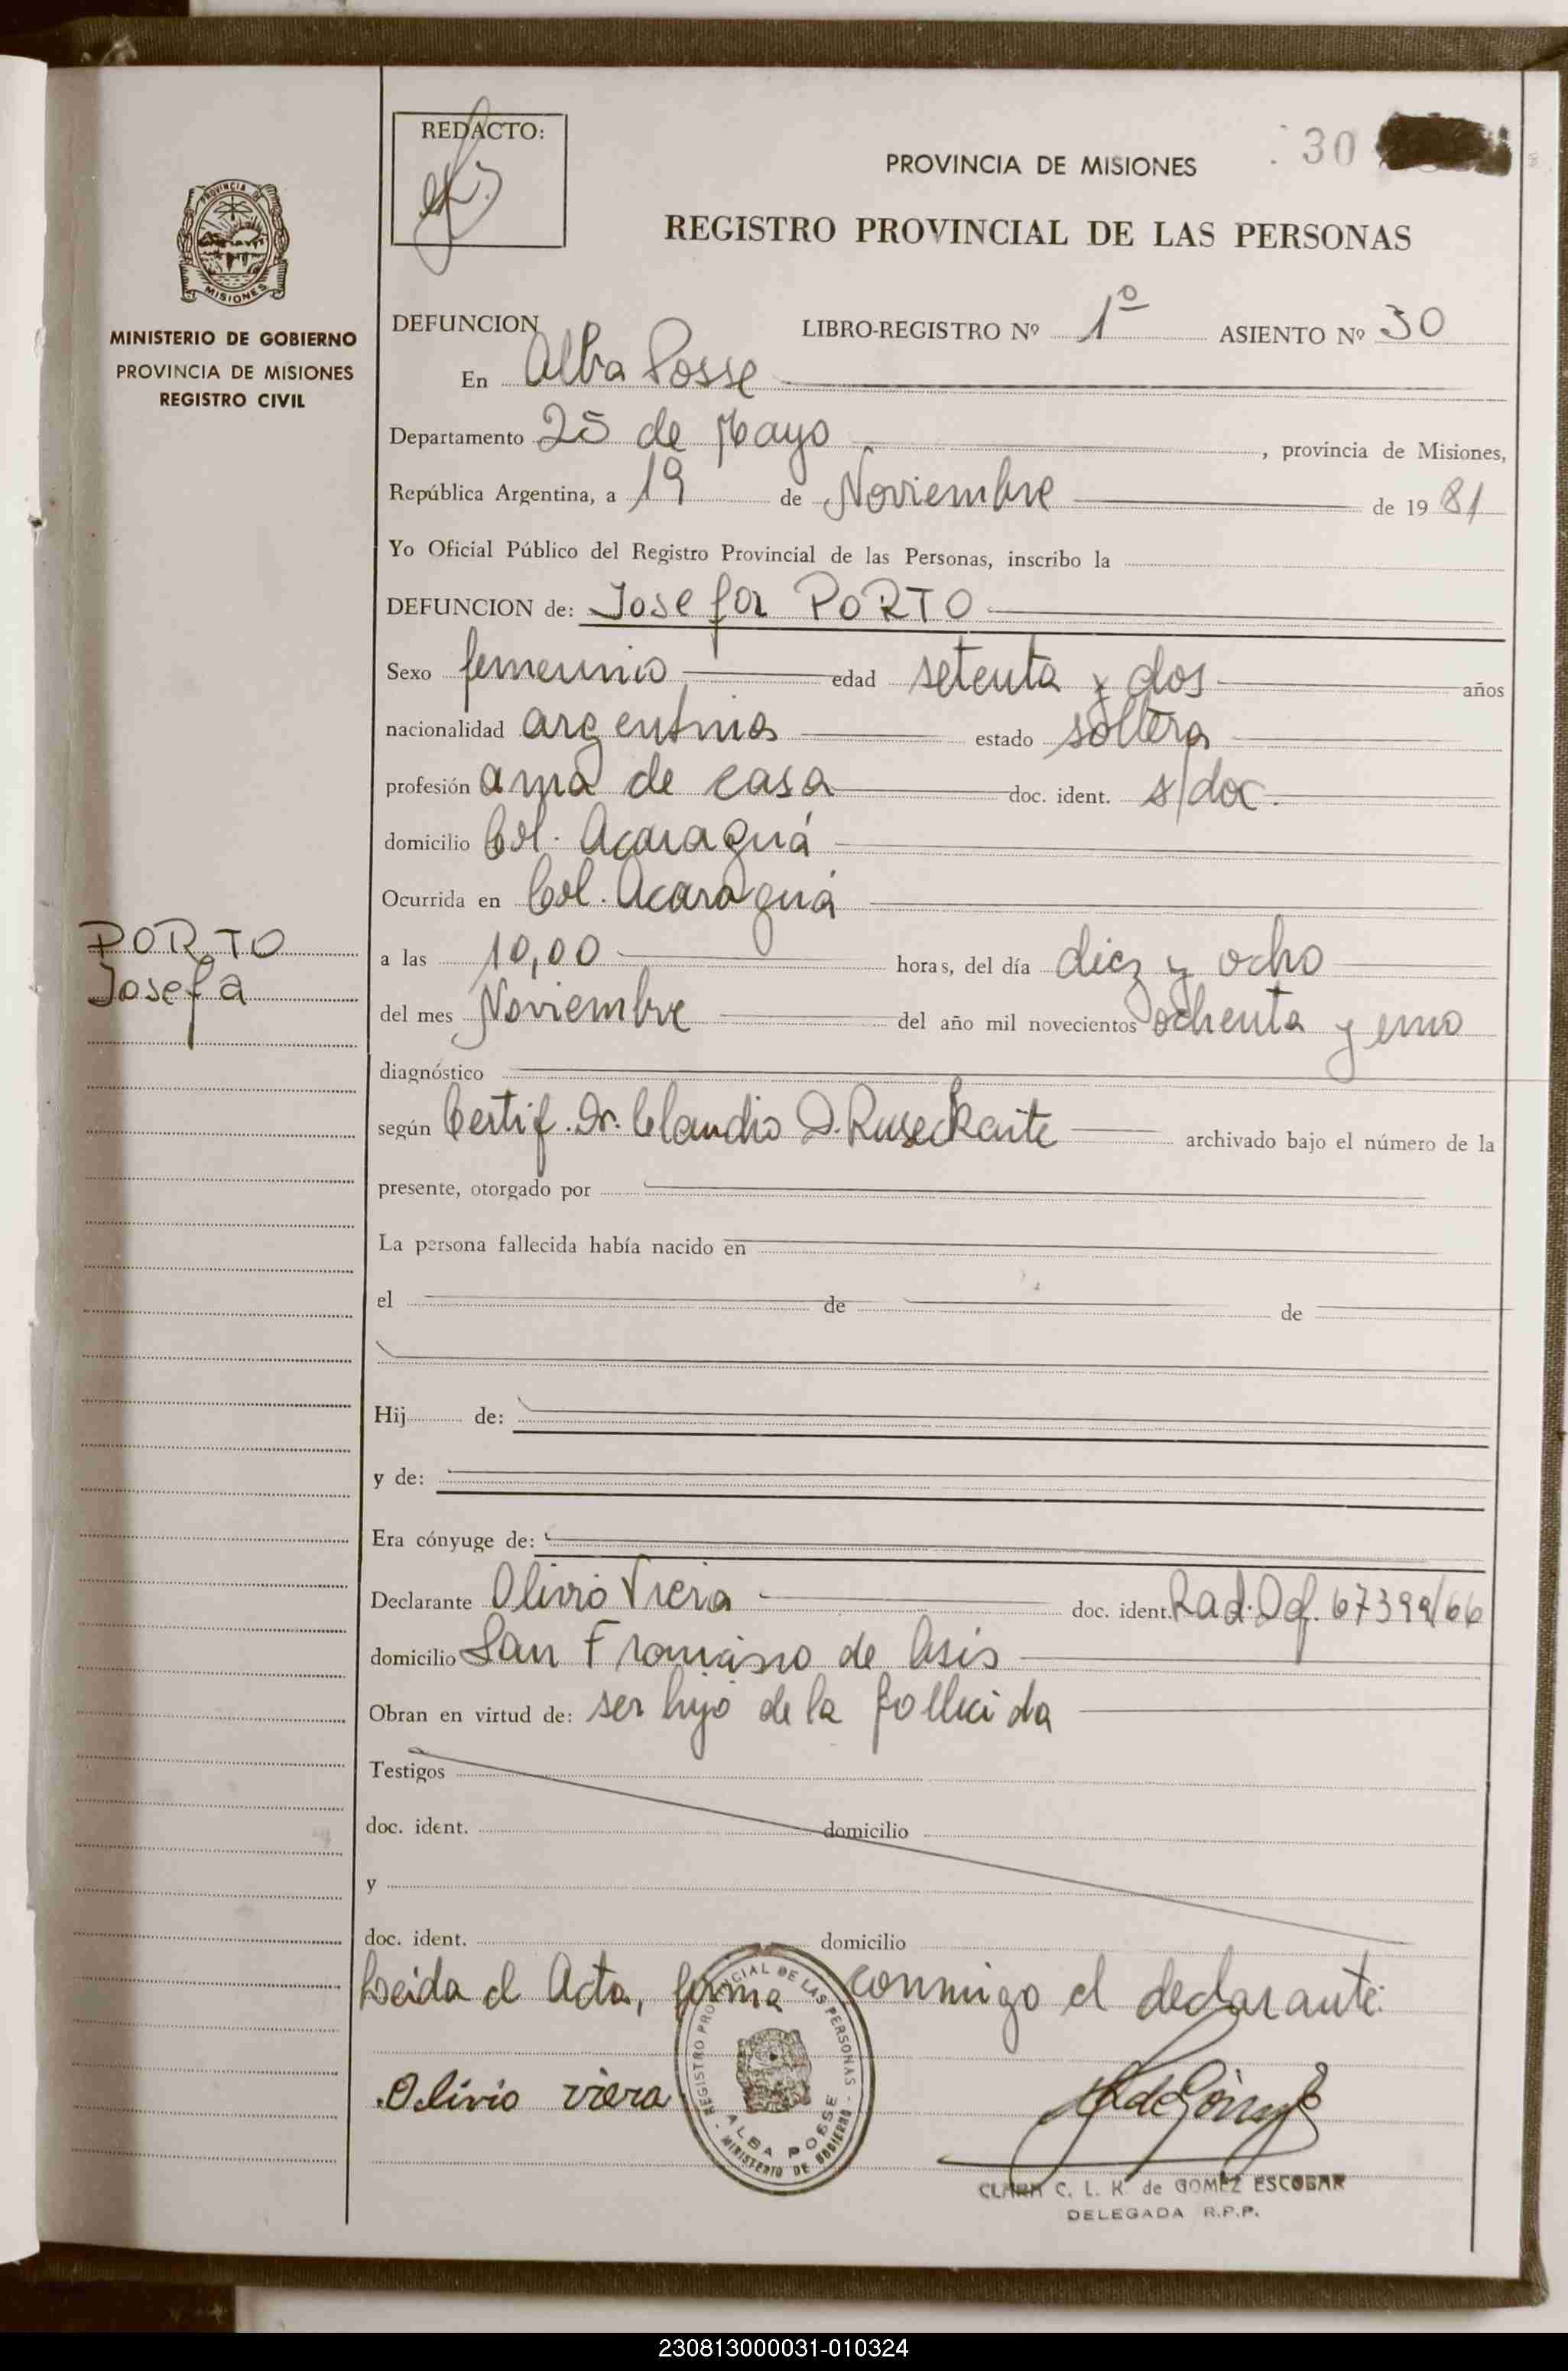 REDACTO:
PROVINCIA DE MISIONES
30
REGISTRO PROVINCIAL DE LAS PERSONAS
PROVINCIA DE
MISIONES
MINISTERIO DE GOBIERNO
PROVINCIA DE MISIONES
REGISTRO CIVIL
DEFUNCION
LIBRO-REGISTRO Nº 1º ASIENTO Nº 30
En Alba Posse
Departamento 25 de Mayo , provincia de Misiones,
República Argentina, a 19 de Noviembre de 19 81
Yo Oficial Público del Registro Provincial de las Personas, inscribo la
DEFUNCION de: Josefa PORTO
Sexo femenino edad setenta y dos años
nacionalidad argentina estado soltera
profesión ama de casa doc. ident. s/doc.
domicilio Col. Acaraguá
Ocurrida en Col. Acaraguá
PORTO
Josefa
a las 10,00 horas, del día diez y ocho
del mes Noviembre del año mil novecientos ochenta y uno
diagnóstico
según Certif. Dr. Claudio D. Ruseckaite archivado bajo el número de la
presente, otorgado por
La persona fallecida había nacido en
el de de
Hij de:
y de:
Era cónyuge de:
Declarante Olivio Viera doc. ident. Rad. Def. 67399/66
domicilio San Francisco de Asis
Obran en virtud de: ser hijo de la fallecida
Testigos
doc. ident. domicilio
y
doc. ident. domicilio
Leida el Acta, firma conmigo el declarante:
REGISTRO PROVINCIAL DE LAS PERSONAS
ALBA POSSE
MINISTERIO DE GOBIERNO
Olivio viera
CLARA C. L. K. de GOMEZ ESCOBAR
DELEGADA R.P.P.
230813000031-010324